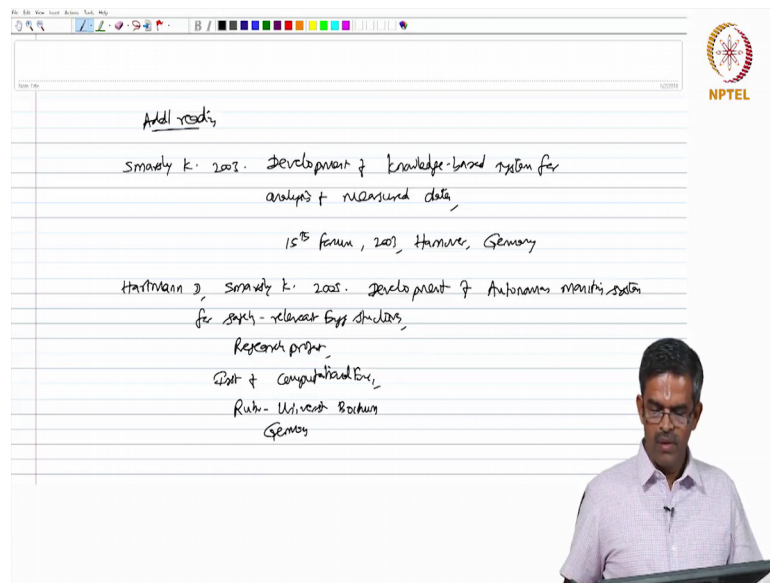 File Edit View Insert Actions Tools Help
B I
NPTEL
Note Title
Addl reading
Smarsly K. 2003. Development of knowledge-based system for
analysis of measured data,
15th Forum, 2003, Hannover, Germany
Hartmann D, Smarsly K. 2005. Development of Autonomous monitoring system
for safety-relevant Engg structures,
Research project,
Inst of Computational Eng,
Ruhr-Universit Bochum
Germany